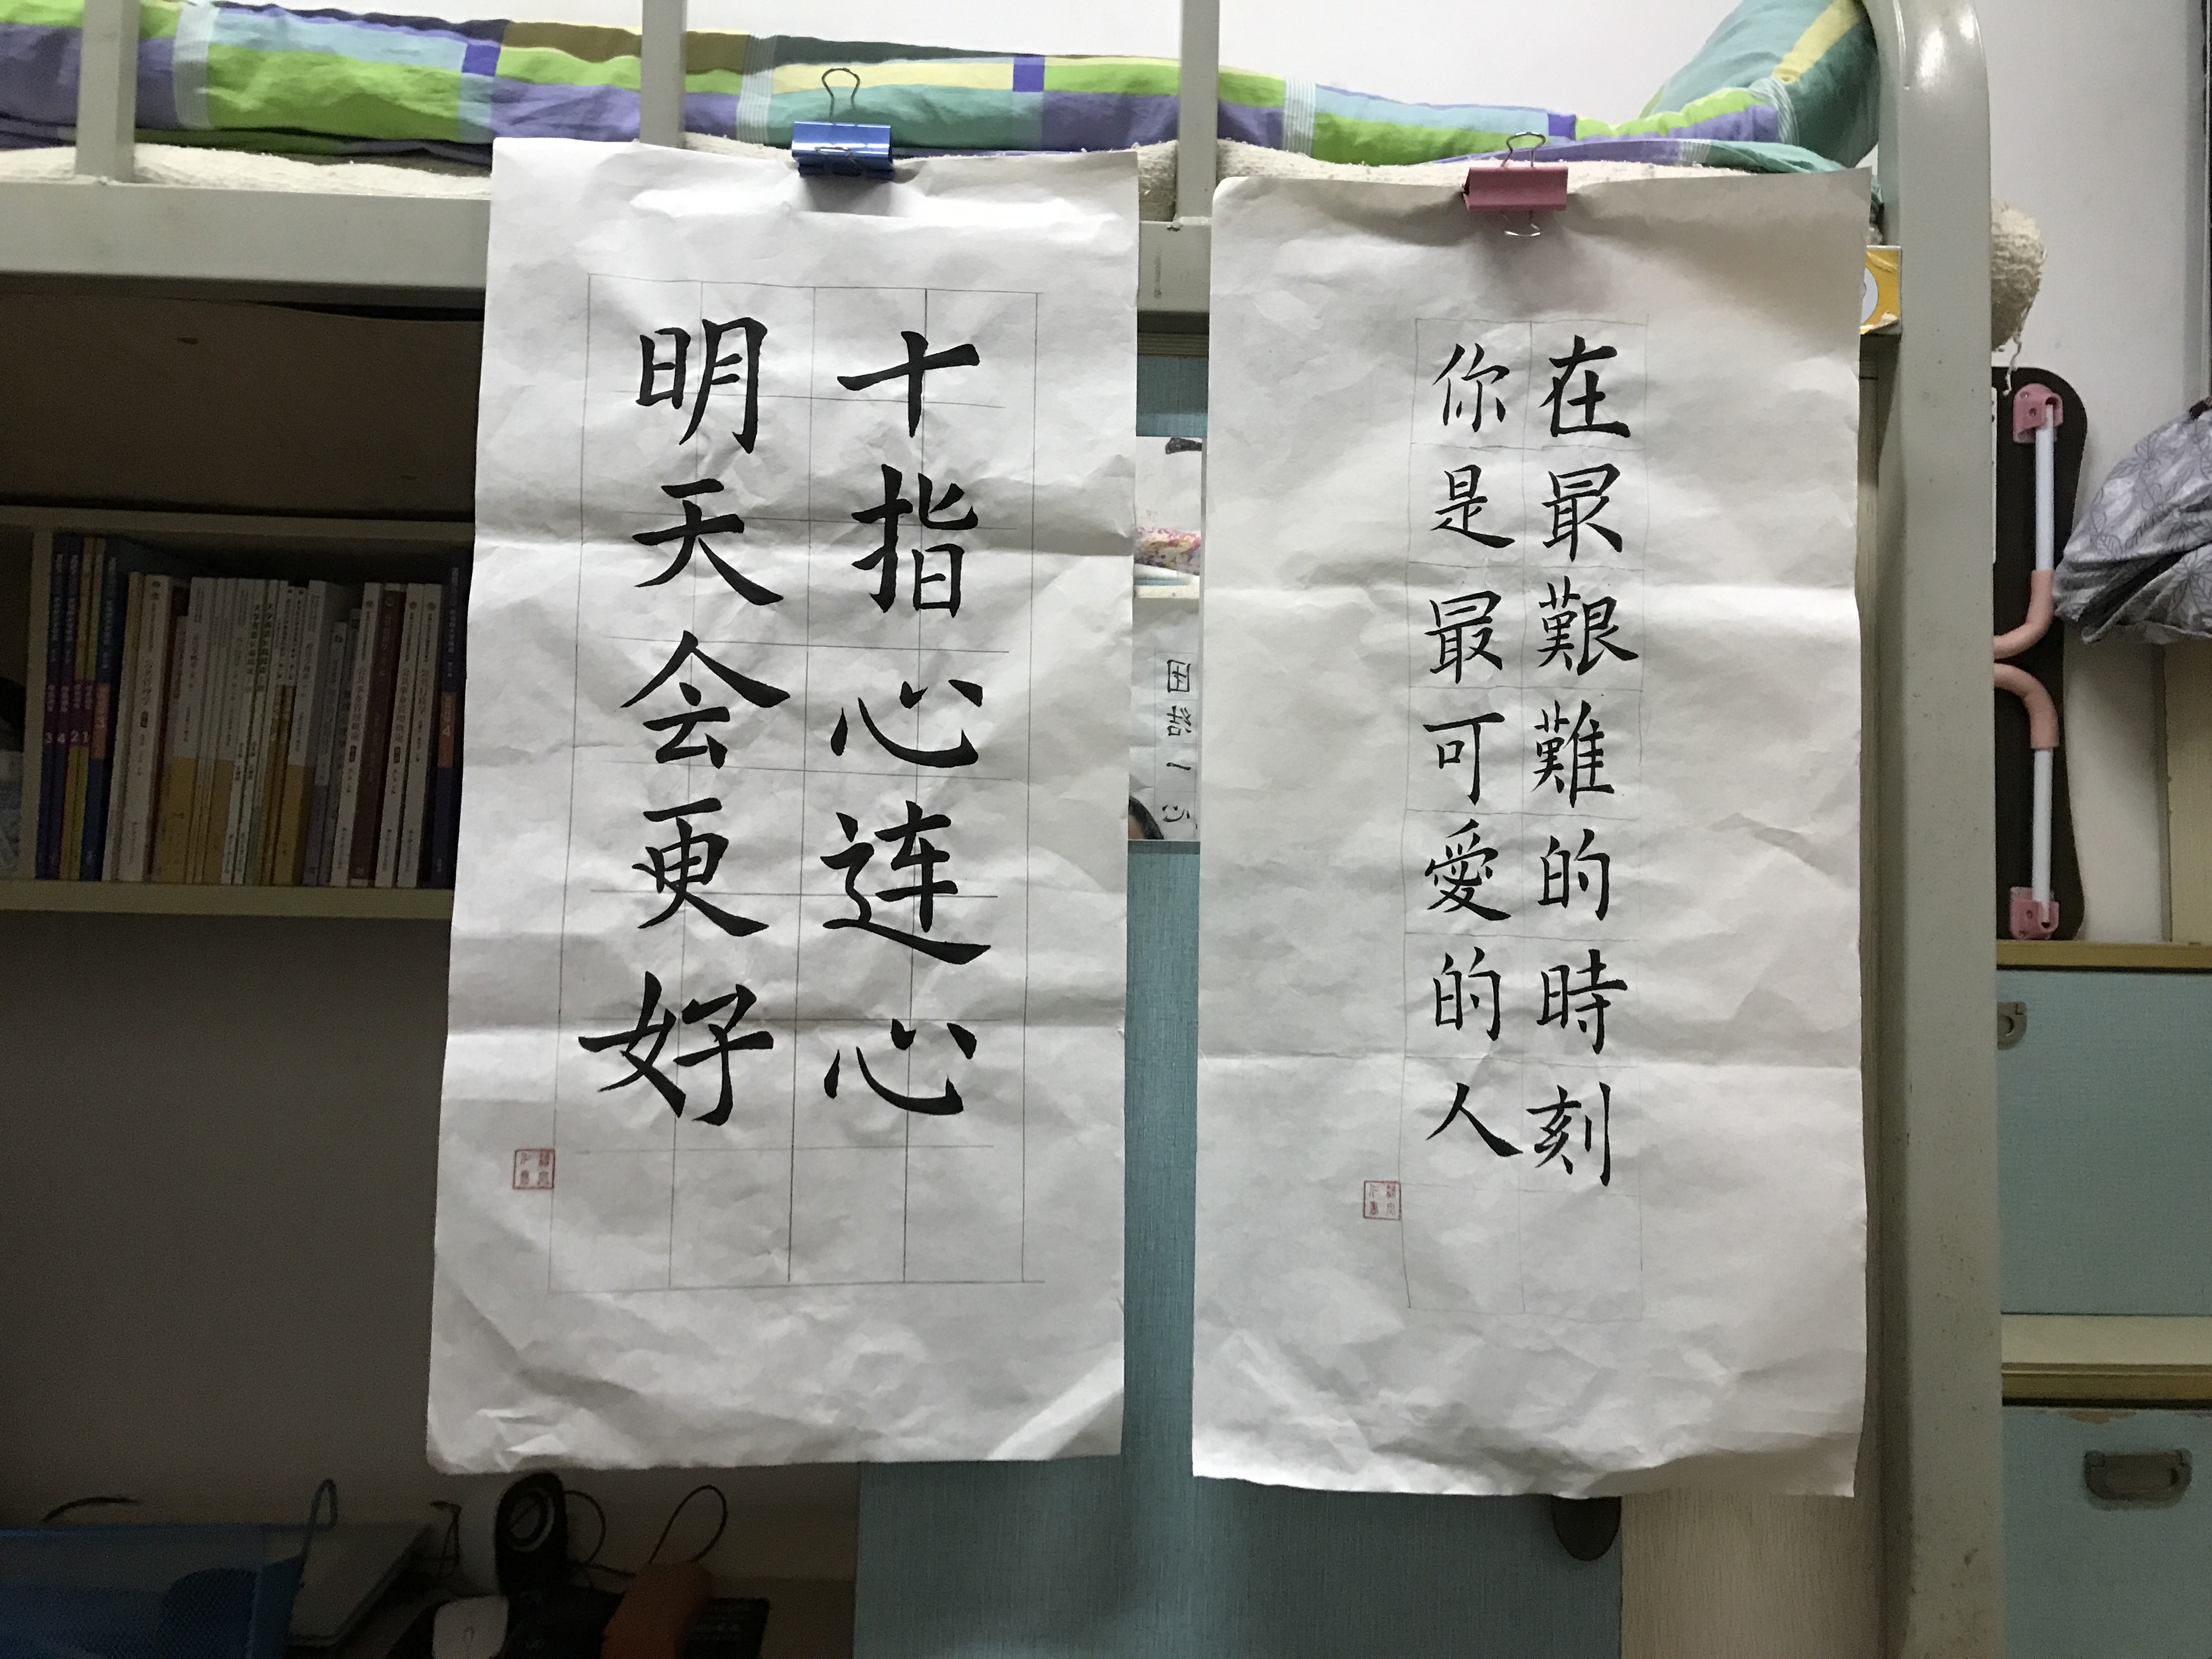 在最艱難的時刻
你是最可愛的人
十指心连心
明天会更好